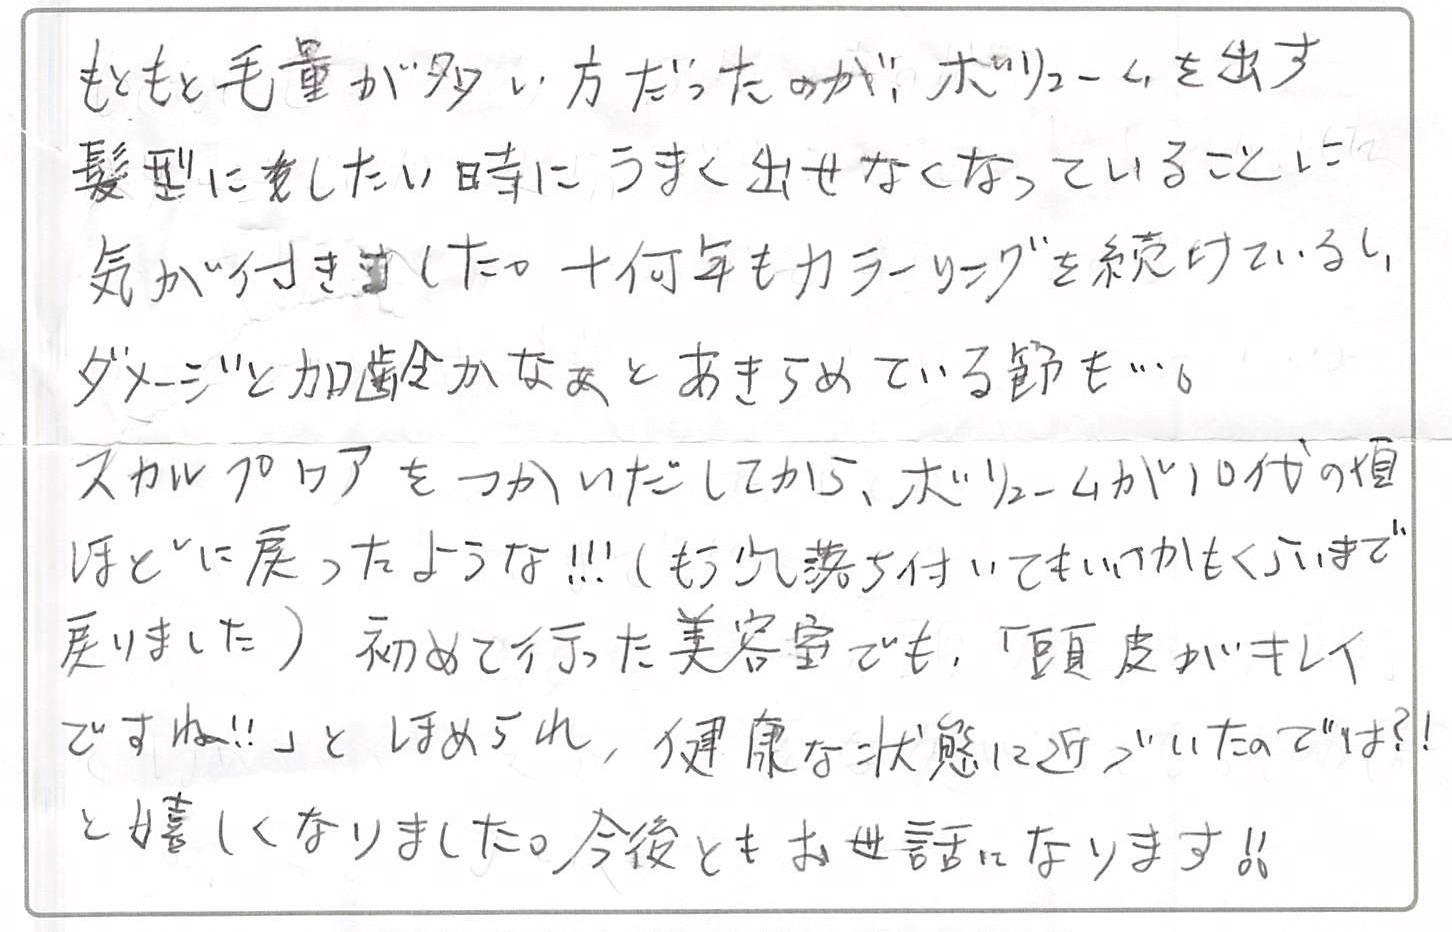 もともと毛量が多い方だったのが、ボリュームを出す
髪型にしたい時にうまく出せなくなっていることに
気が付きました。十何年もカラーリングを続けているし、
ダメージと加齢かなぁとあきらめている節も…。
スカルプケアをつかいだしてから、ボリュームが10代の頃
ほどに戻ったような!!!(もう少し落ち付いてもいいかもくらいまで
戻りました) 初めて行った美容室でも、「頭皮がキレイ
ですね!!」とほめられ、健康な状態に近づいたのでは?!
と嬉しくなりました。今後ともお世話になります!!